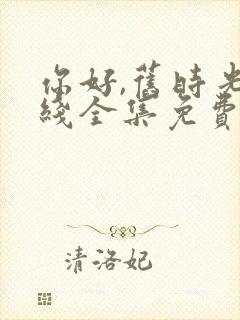 你好,舊時光
綫全集免費
清洛妃